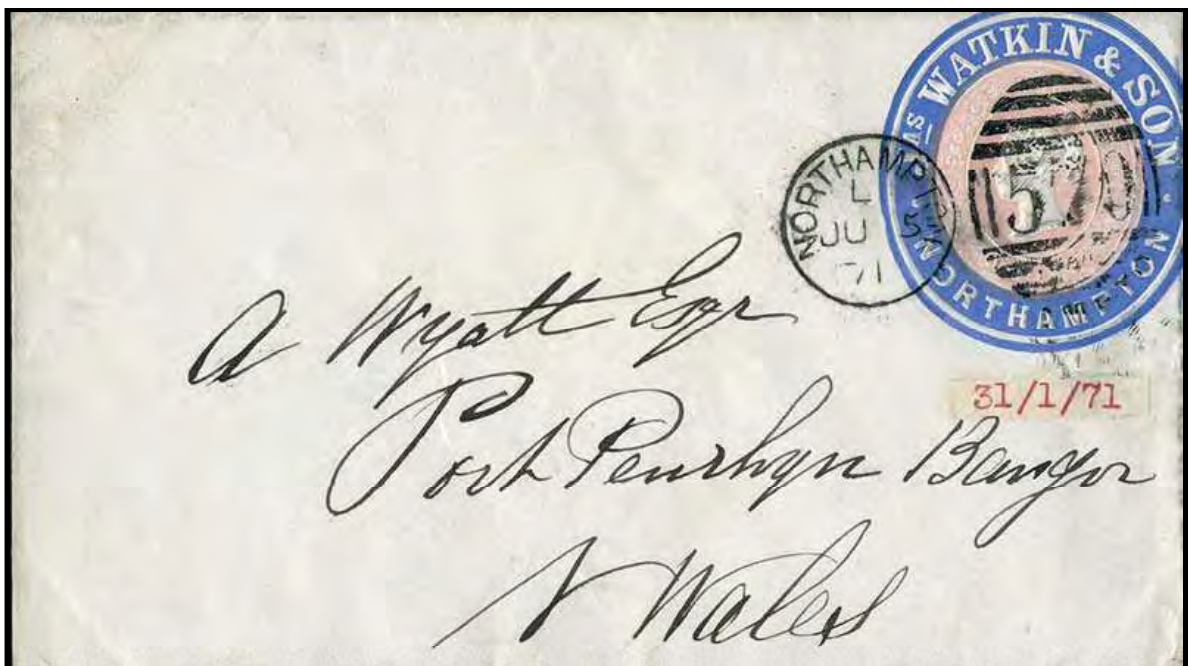 AS WATKIN & SON
NORTHAMPTON
NORTHAMPTON
L
JU 5
71
A Wyatt Esqr
31/1/71
Port Penrhyn Bangor
N Wales